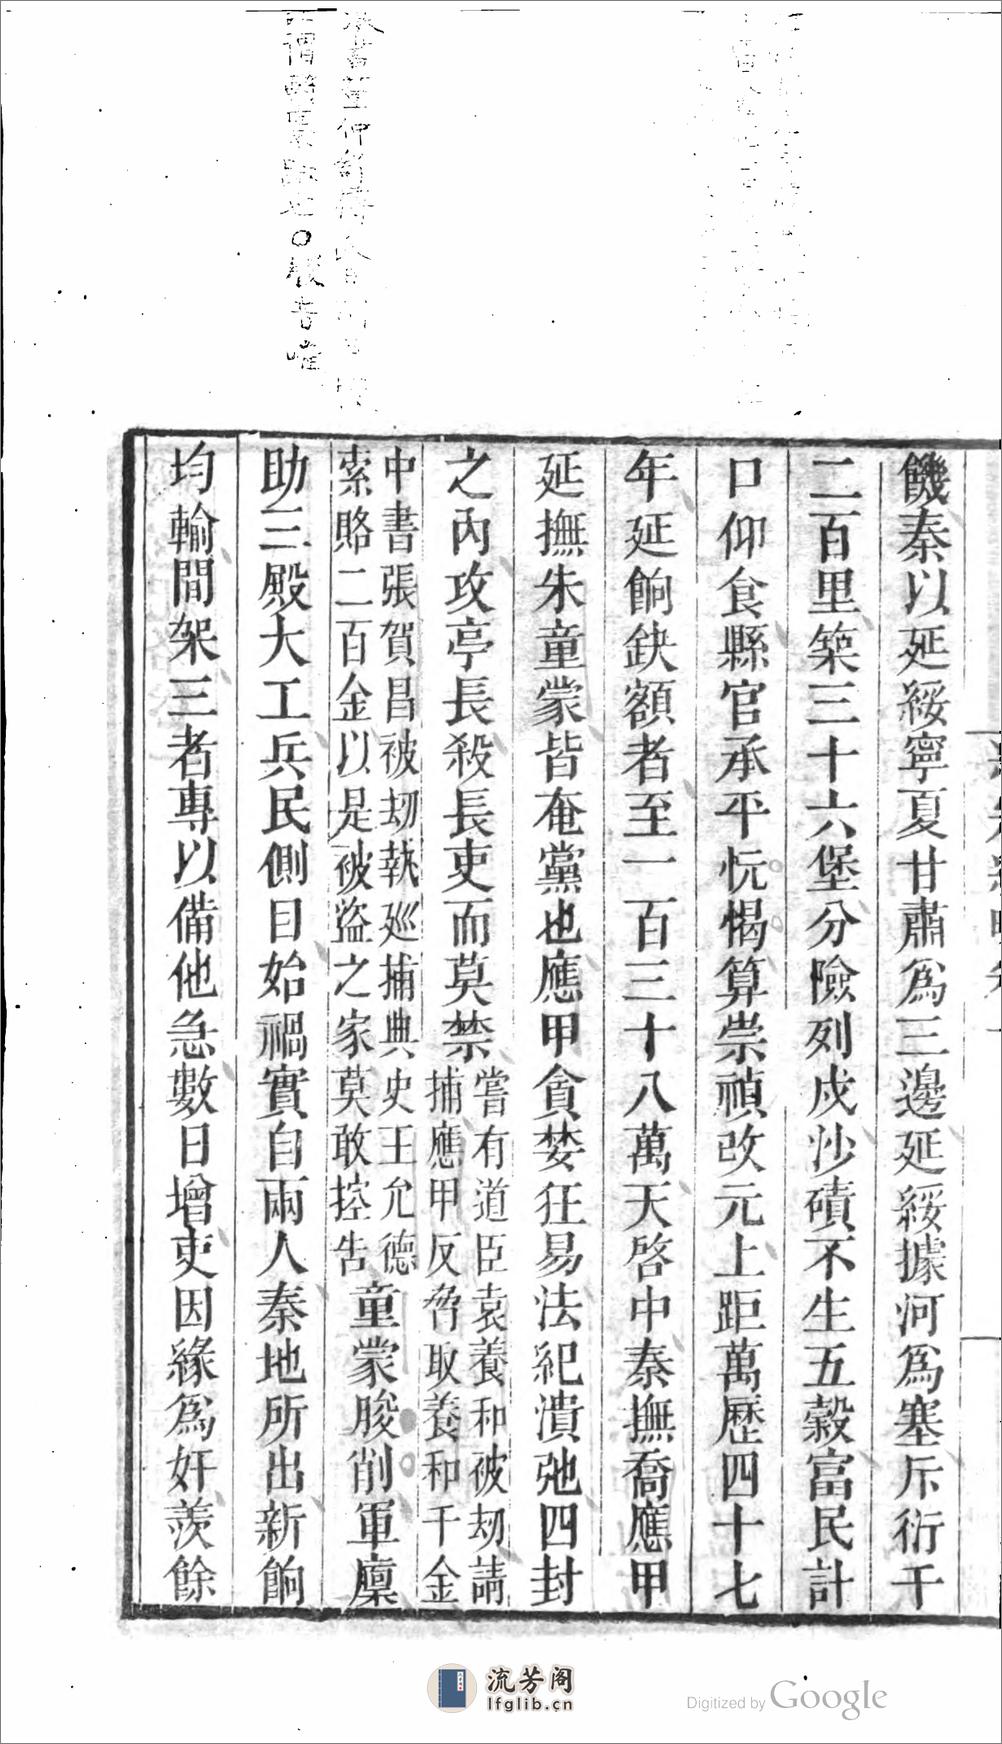 饑秦以延綏寧夏甘肅爲三邊延綏據河爲塞斥衍千
二百里築三十六堡分險列戍沙磧不生五穀富民計
口仰食縣官承平忨愒算崇禎改元上距萬歷四十七
年延餉缺額者至一百三十八萬天啓中秦撫喬應甲
延撫朱童蒙皆奄黨也應甲貪婪狂易法紀潰弛四封
之內攻亭長殺長吏而莫禁
嘗有道臣袁養和被刼請
捕應甲反脅取養和千金
中書張賀昌被刼執廵捕典史王允德
索賂二百金以是被盜之家莫敢控告
童蒙朘削軍廩
助三殿大工兵民側目始禍實自兩人秦地所出新餉
均輸間架三者專以備他急數日增吏因緣爲奸羨餘
流芳阁
lfglib.cn
Digitized by Google